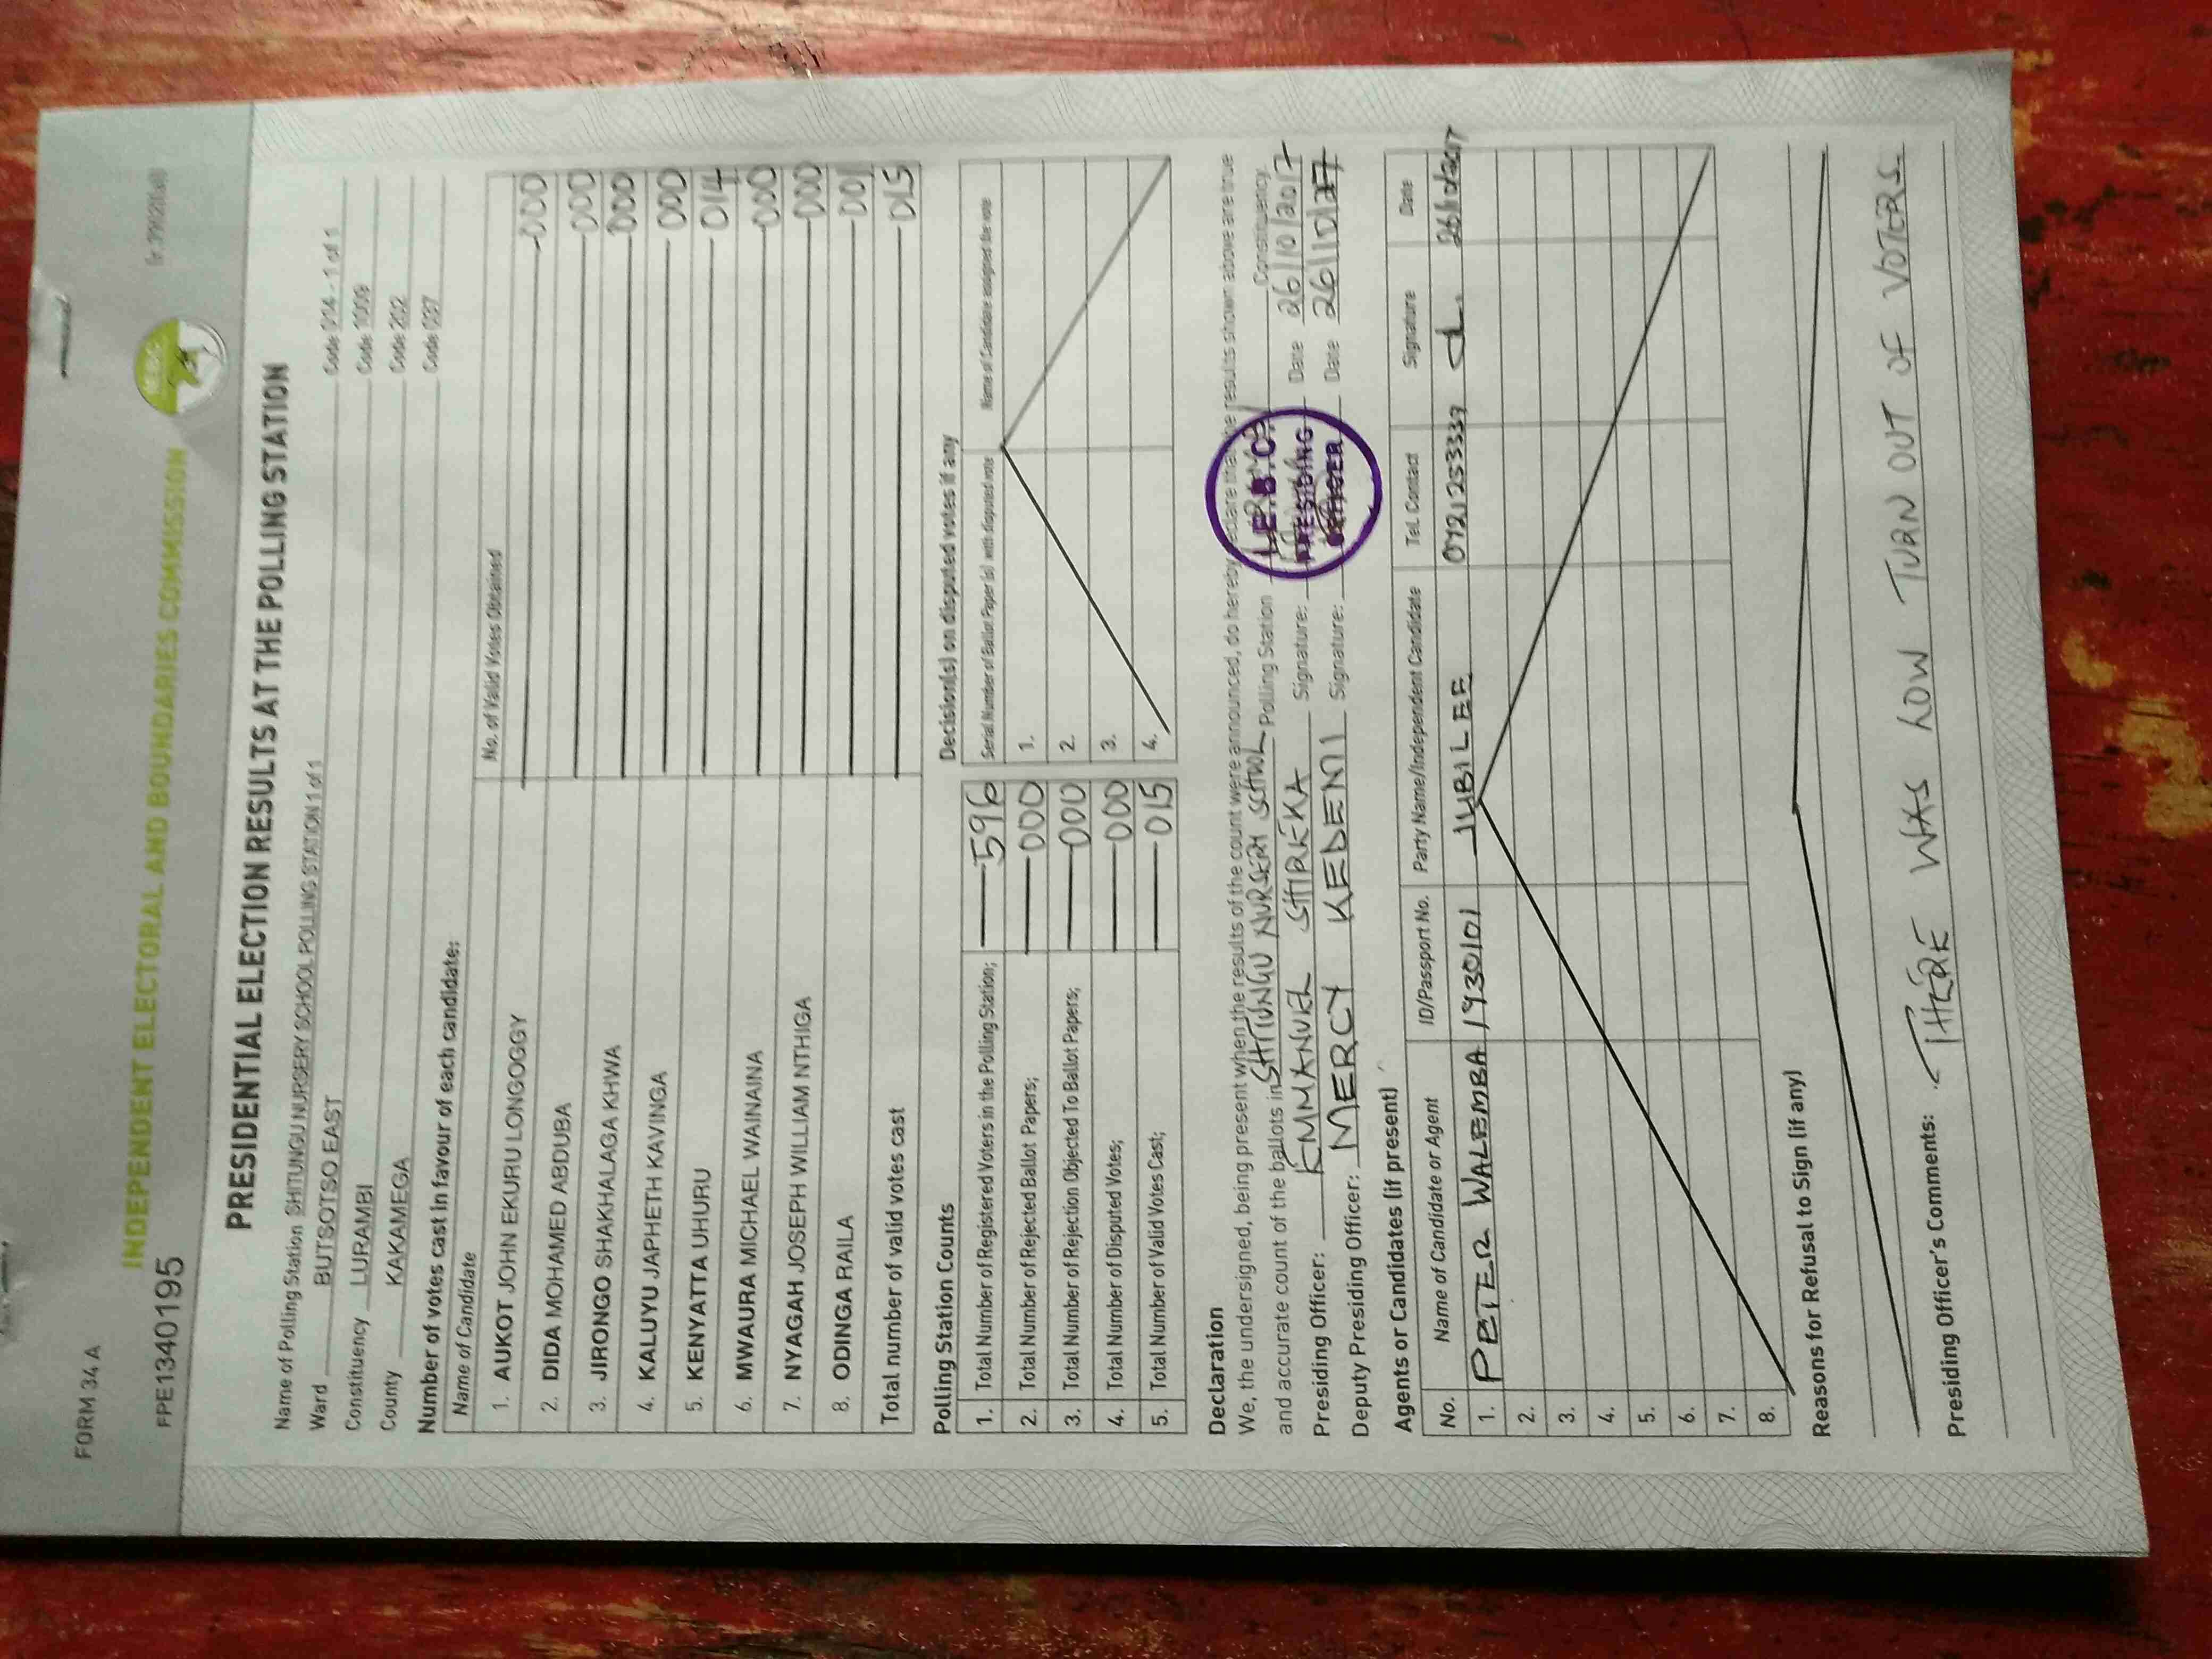 FORM 34 A
INDEPENDENT ELECTORAL AND BOUNDARIES COMMISSION
FPE1340195
PRESIDENTIAL ELECTION RESULTS AT THE POLLING STATION
Name of Polling Station SHITUNGU NURSERY SCHOOL POLLING STATION 1 of 1 Code 014 - 1 of 1
Ward BUTSOTSO EAST Code 1009
Constituency LURAMBI Code 202
County KAKAMEGA Code 037
Number of votes cast in favour of each candidate:
Name of Candidate No. of Valid Votes Obtained
1. AUKOT JOHN EKURU LONGOGGY 000
2. DIDA MOHAMED ABDUBA 000
3. JIRONGO SHAKHALAGA KHWA 000
4. KALUYU JAPHETH KAVINGA 000
5. KENYATTA UHURU 014
6. MWAURA MICHAEL WAINAINA 000
7. NYAGAH JOSEPH WILLIAM NTHIGA 000
8. ODINGA RAILA 001
Total number of valid votes cast 015
Polling Station Counts
1. Total Number of Registered Voters in the Polling Station; 596
2. Total Number of Rejected Ballot Papers; 000
3. Total Number of Rejection Objected To Ballot Papers; 000
4. Total Number of Disputed Votes; 000
5. Total Number of Valid Votes Cast; 015
Decision(s) on disputed votes if any
Serial Number of Ballot Paper (s) with disputed vote Name of Candidate assigned the vote
1.
2.
3.
4.
Declaration
We, the undersigned, being present when the results of the count were announced, do hereby declare that the results shown above are true
and accurate count of the ballots in SHITUNGU NURSERY SCHOOL Polling Station Constituency.
Presiding Officer: EMMANUEL SHIREKA Signature: Date 26/10/2017
Deputy Presiding Officer: MERCY KEDENII Signature: Date 26/10/2017
I.E.B.C
PRESIDING
OFFICER
Agents or Candidates (if present)
No. Name of Candidate or Agent ID/Passport No. Party Name/Independent Candidate Tel. Contact Signature Date
1. PETER WALEMBA 1930101 JUBILEE 0721253339 26/10/2017
2.
3.
4.
5.
6.
7.
8.
Reasons for Refusal to Sign (if any)
Presiding Officer's Comments: THERE WAS LOW TURN OUT OF VOTERS.